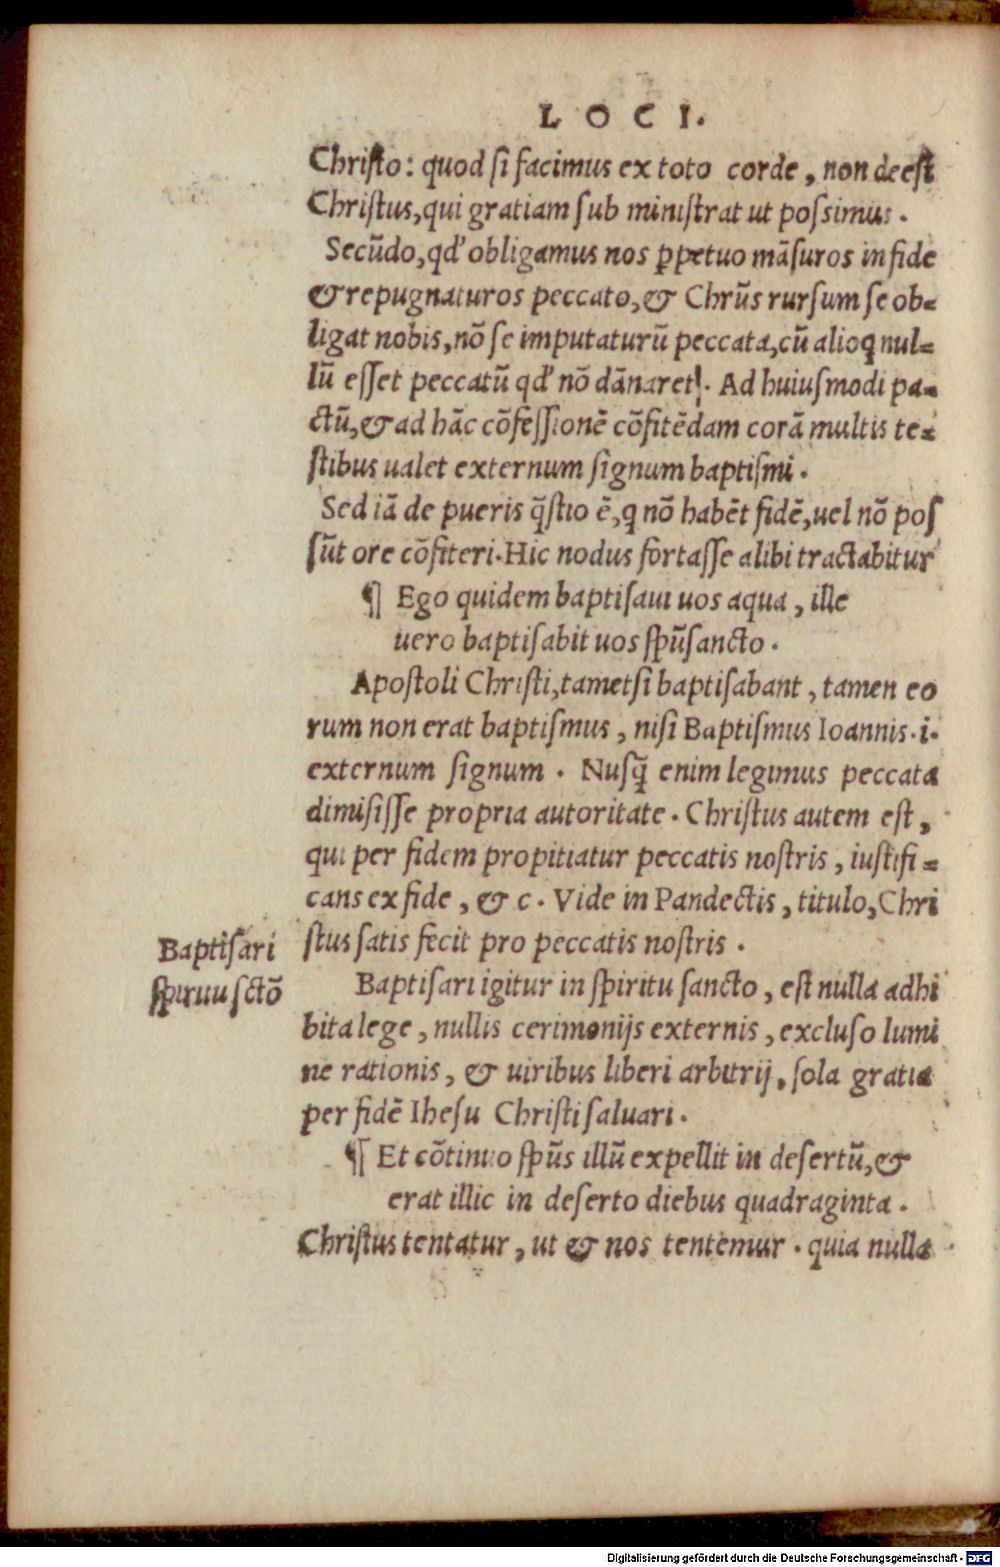 LOCI.
Christo: quod si facimus ex toto corde, non deest
Christus, qui gratiam sub ministrat ut possimus.
Secũdo, qđ obligamus nos ꝑpetuo mãsuros in fide
& repugnaturos peccato, & Chrũs rursum se ob=
ligat nobis, nõ se imputaturũ peccata, cũ alioq nul=
lũ esset peccatũ qđ nõ dãnaret. Ad huiusmodi pa=
ctũ, & ad hãc cõfessionẽ cõfitẽdam corã multis te=
stibus ualet externum signum baptismi.
Sed iã de pueris q̃stio ẽ, q nõ habẽt fidẽ, uel nõ pos
sũt ore cõfiteri. Hic nodus fortasse alibi tractabitur
¶ Ego quidem baptisaui uos aqua, ille
uero baptisabit uos spũ sancto.
Apostoli Christi, tametsi baptisabant, tamen eo
rum non erat baptismus, nisi Baptismus Ioannis .i.
externum signum. Nusq̃ enim legimus peccata
dimisisse propria autoritate. Christus autem est,
qui per fidem propitiatur peccatis nostris, iustifi=
cans ex fide, & c. Vide in Pandectis, titulo, Chri
stus satis fecit pro peccatis nostris.
Baptisari
spiritu sctõ
Baptisari igitur in spiritu sancto, est nulla adhi
bita lege, nullis cerimonijs externis, excluso lumi
ne rationis, & uiribus liberi arbitrij, sola gratia
per fidẽ Ihesu Christi saluari.
¶ Et cõtinuo spũs illũ expellit in desertũ, &
erat illic in deserto diebus quadraginta.
Christus tentatur, ut & nos tentemur. quia nulla
Digitalisierung gefördert durch die Deutsche Forschungsgemeinschaft - DFG